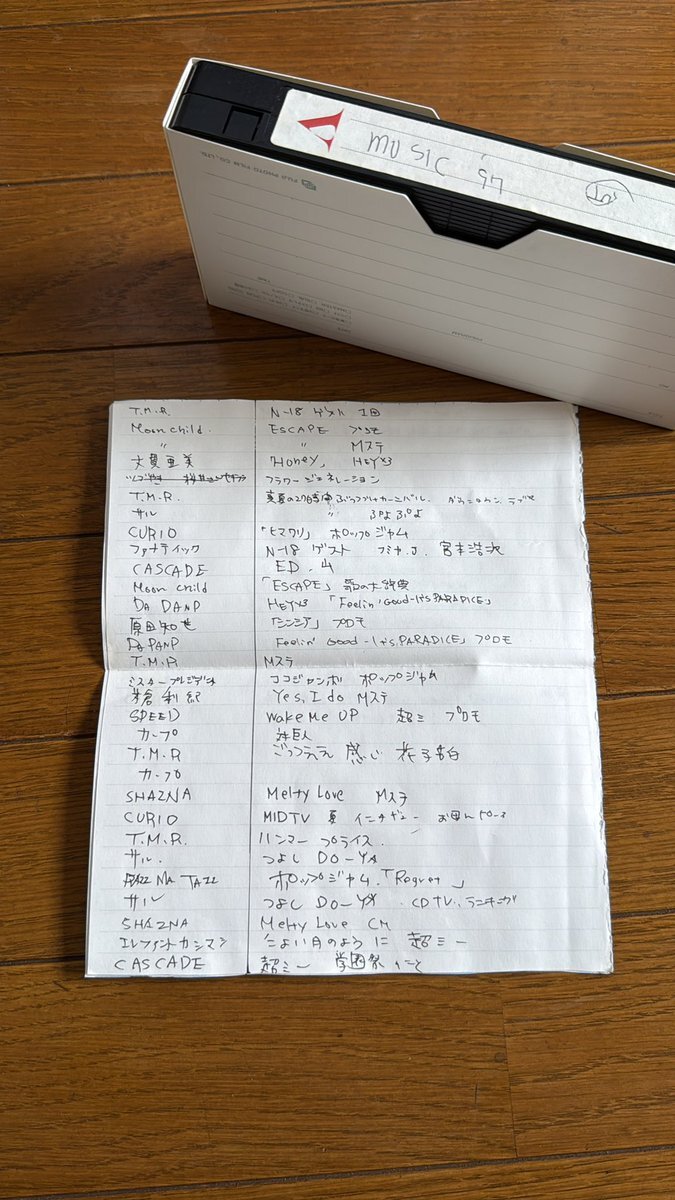 MUSIC 97
FUJI PHOTO FILM CO., LTD.
T.M.R. N-18 ゲスト 1回
Moon child. ESCAPE プロモ
〃 〃 Mステ
大貫亜美 「Honey」 HEY×3
フラワージェネレーション
T.M.R. ダウンタウン
サル 〃 ぷよぷよ
CURIO 「ヒマワリ」 ポップジャム
ファナティック N-18 ゲスト フミヤ.J. 宮本浩次
CASCADE ED.山
Moon child 「ESCAPE」 歌の大辞典
DA DANP HEY×3 「Feelin' Good-It's PARADICE」
原田知世 「シンシア」 プロモ
Da PANP Feelin' Good-It's PARADICE」 プロモ
T.M.R Mステ
ミスタープレジデント ココジャンボ ポップジャム
米倉利紀 Yes, I do Mステ
SPEED Wake Me UP 超ミ プロモ
カープ 対巨人
T.M.R ごっつええ感じ 花子告白
カープ
SHAZNA Melty Love Mステ
CURIO MIDTV 夏
T.M.R. ハンマープライス.
サル. つよし DO-YA
RAZZ MA TAZZ ポップジャム.「Regret」
サル つよし DO-YA .CDTV.ランキング
SHAZNA Melty Love CM
エレファントカシマシ 今宵の月のように 超ミー
CASCADE 超ミー 学園祭